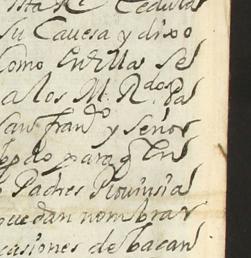 ista Rl Cedula
su Cavesa y dixo
como en ella se
a los M. Rdos Pa
san Franco y señor
bpdo para q en
s Padres Provinsia
puedan nombrar
casiones de bacan